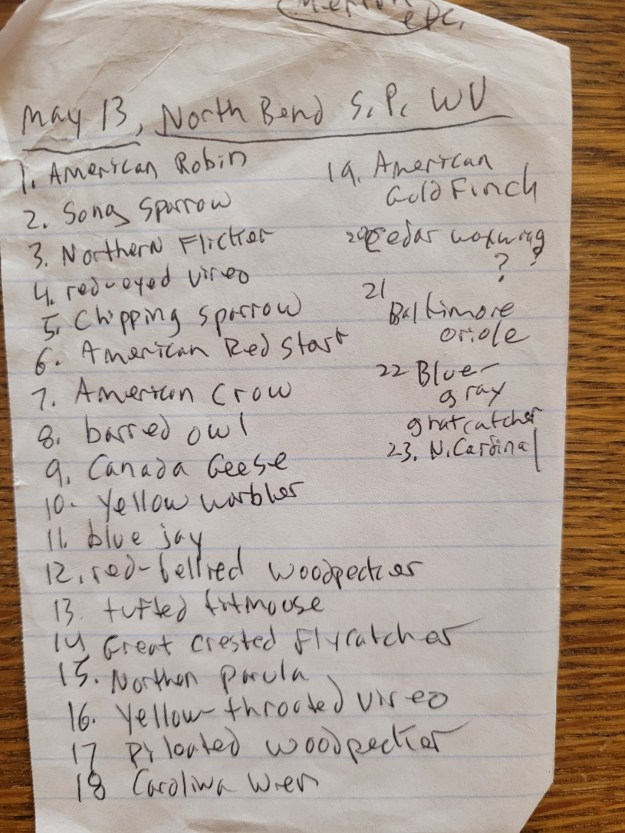 etc.
May 13, North Bend S.P. WV
1. American Robin
2. Song Sparrow
3. Northern Flicker
4. red-eyed vireo
5. Chipping Sparrow
6. American Red Start
7. American Crow
8. barred owl
9. Canada Geese
10. Yellow warbler
11. blue jay
12. red-bellied woodpecker
13. tufted titmouse
14 Great crested flycatcher
15. Northern parula
16. Yellow-throated vireo
17 Pileated woodpecker
18 Carolina Wren
19. American
Gold Finch
20 Cedar waxwing
? ?
21
Baltimore
oriole
22 Blue-
gray
gnatcatcher
23. N. Cardinal